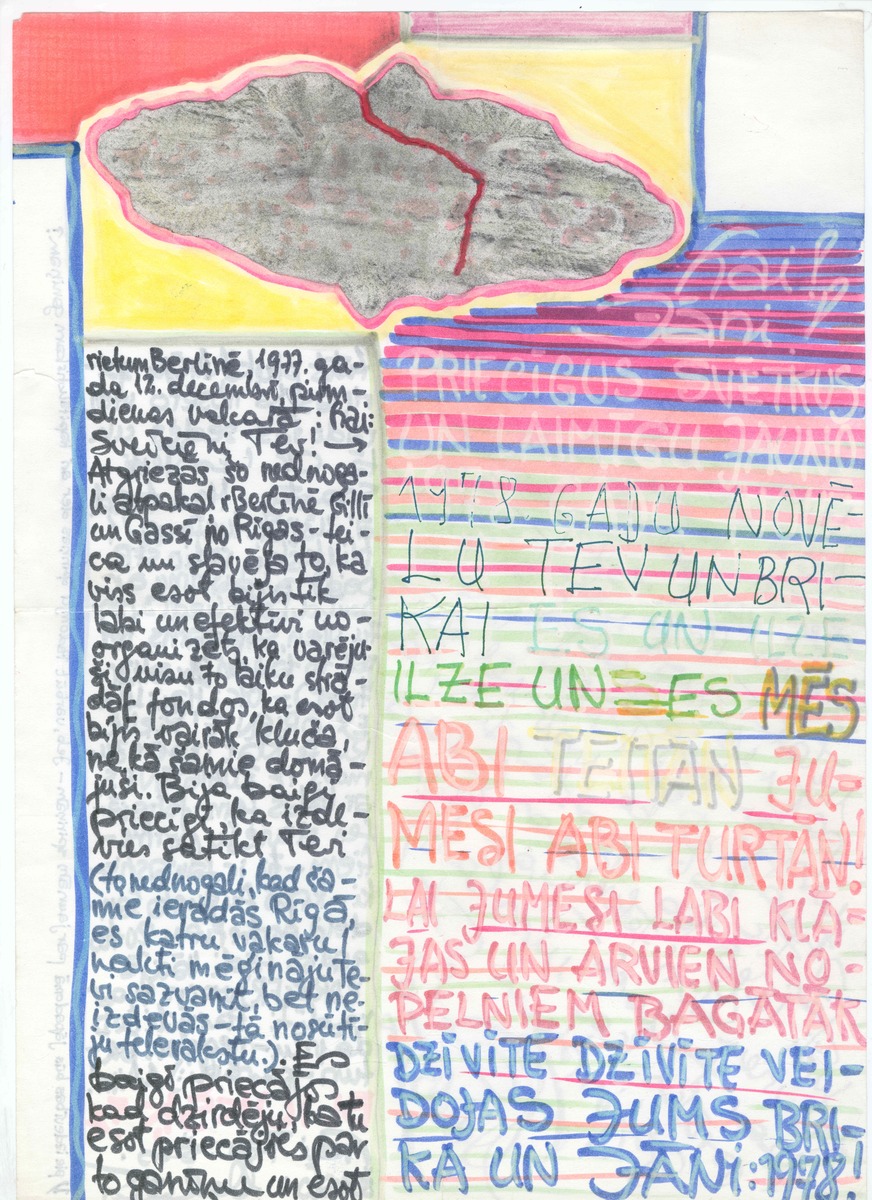 rietumBerlīnē, 1977. ga-
da 12. decembrī, pirm-
dienas vakarā : Kai:
Sveiciens, Tev! →
Atgriezās šo nednoga-
li atpakaļ rBerlīnē Gillī
un Gassī no Rīgas - tei-
ca un slavēja to, ka
viss esot bijis tik
labi un efektīvi no-
organizēts, ka varēju-
ši visu to laiku strā-
dāt fondos, ka esot
bijis vairāk kluča,
nekā šamie domā-
juši. Bija baigi
priecīgi, ka izde-
vies satikt Tevi
(to nednogali, kad ša-
mie ieradās Rīgā,
es katru vakaru/
nakti mēģināju Te-
vi sazvanīt, bet ne-
izdevās - tā nosūtī-
ju telerakstu.). ES
baigi priecājos
kad dzirdēju, ka tu
esot priecājies par
to ganīknu un esot
Kai!
Jāni!
PRIECĪGUS SVĒTKUS
UN LAIMĪGU JAUNO
1978. GADU NOVĒ-
LU TEV UN BRI-
KAI ES UN ILZE
ILZE UN ES MĒS
ABI TEITAN JU-
MESI ABI TURTĀN!
LAI JUMESI LABI KLĀ-
JAS UN ARVIEN NO-
PELNIEM BAGĀTĀK
DZĪVĪTE DZĪVĪTE VEI-
DOJAS JUMS BRI-
KA UN JĀNi:1978!